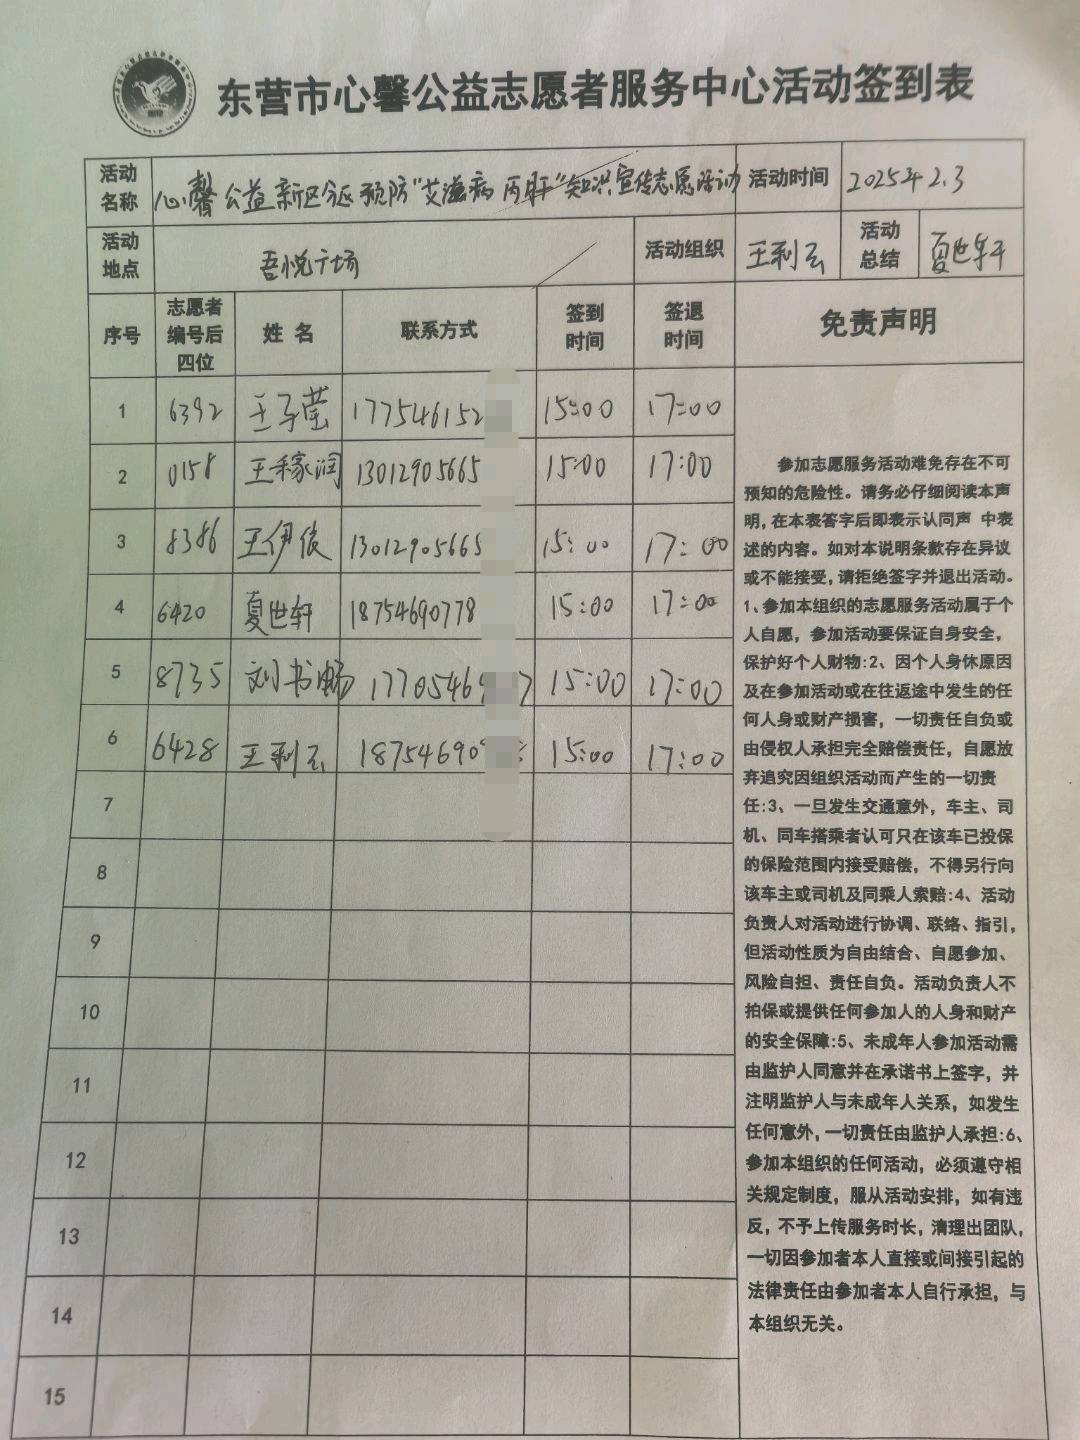 东营市心馨公益志愿者服务中心活动签到表
活动名称 心馨公益新区分区预防"艾滋病 丙肝"知识宣传志愿活动 活动时间 2025年2.3
活动地点 吾悦广场 活动组织 王利云 活动总结 夏世轩
序号 志愿者编号后四位 姓名 联系方式 签到时间 签退时间 免责声明
1 6392 王子莹 177546152 15:00 17:00
2 0158 王稼润 13012905665 15:00 17:00
3 8386 王伊依 13012905665 15:00 17:00
4 6420 夏世轩 18754690778 15:00 17:00
5 8735 刘书畅 17705469 7 15:00 17:00
6 6428 王利云 187546909 15:00 17:00
7
8
9
10
11
12
13
14
15
参加志愿服务活动难免存在不可
预知的危险性。请务必仔细阅读本声
明,在本表答字后即表示认同声 中表
述的内容。如对本说明条款存在异议
或不能接受,请拒绝签字并退出活动。
1、参加本组织的志愿服务活动属于个
人自愿，参加活动要保证自身安全，
保护好个人财物:2、因个人身休原因
及在参加活动或在往返途中发生的任
何人身或财产损害，一切责任自负或
由侵权人承担完全赔偿责任，自愿放
弃追究因组织活动而产生的一切责
任:3、一旦发生交通意外，车主、司
机、同车搭乘者认可只在该车已投保
的保险范围内接受赔偿，不得另行向
该车主或司机及同乘人索赔:4、活动
负责人对活动进行协调、联络、指引，
但活动性质为自由结合、自愿参加、
风险自担、责任自负。活动负责人不
拍保或提供任何参加人的人身和财产
的安全保障:5、未成年人参加活动需
由监护人同意并在承诺书上签字，并
注明监护人与未成年人关系，如发生
任何意外,一切责任由监护人承担:6、
参加本组织的任何活动，必须遵守相
关规定制度，服从活动安排，如有违
反，不予上传服务时长，清理出团队，
一切因参加者本人直接或间接引起的
法律责任由参加者本人自行承担，与
本组织无关。